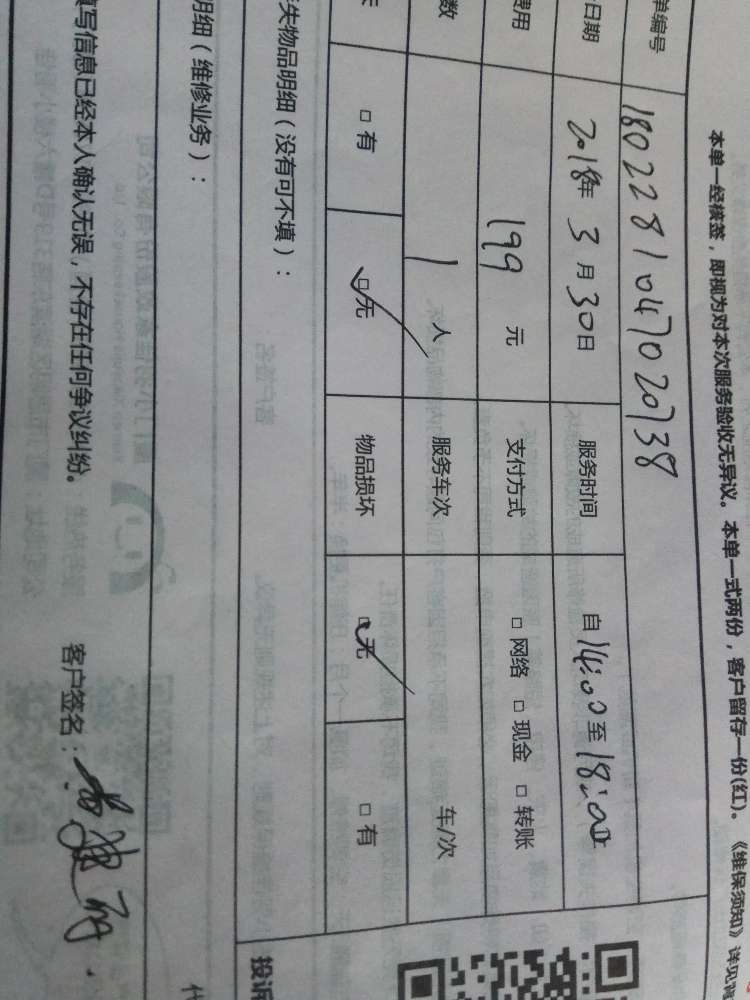 本单一经核签，即视为对本次服务验收无异议。本单一式两份，客户留存一份(红)。《维保须知》详见
单编号 1802281047020738
日期 2018年 3 月 30日 服务时间 自 14:00 至 18:00
费用 199 元 支付方式 □ 网络 □ 现金 □ 转账
数 1 人 服务车次 车/次
□ 有 □ 无 物品损坏 □ 无 □ 有
失物品明细（没有可不填）：
明细（维修业务）：
投诉
填写信息已经本人确认无误，不存在任何争议纠纷。 客户签名：